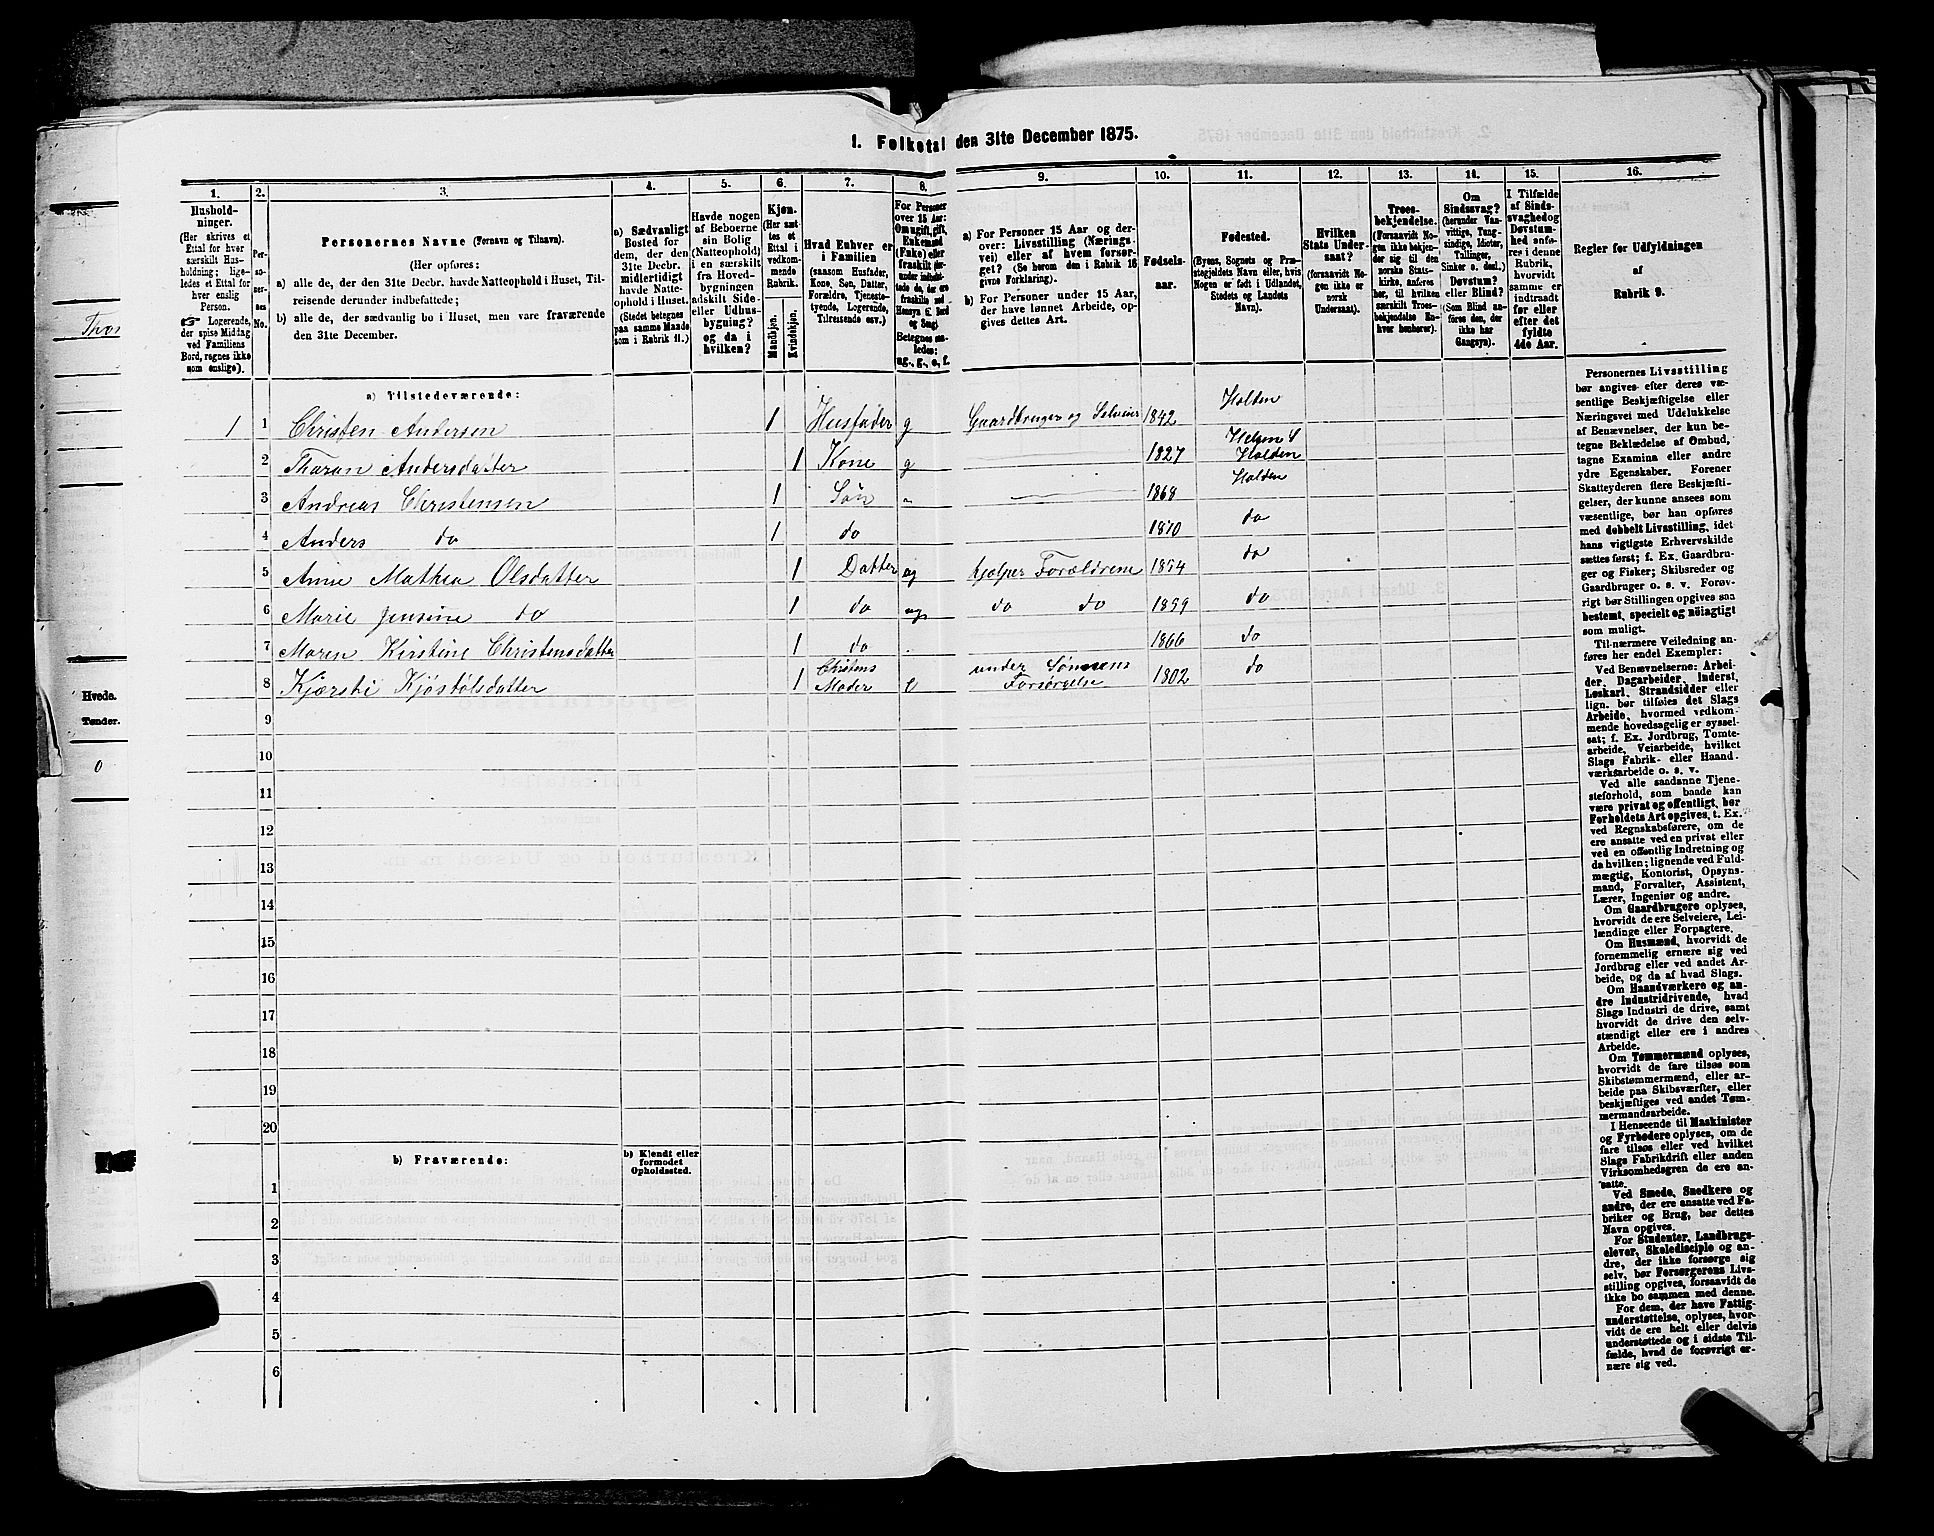 1. Folketal den 31te December 1875.
1.
2.
3.
4.
5.
6.
7.
8.
9.
10.
11.
12.
13.
14.
15.
16.
Hushold-
ninger.
(Her skrives et
Ettal for hver
særskilt Hus-
holdning; lige-
ledes et Ettal for
hver enslig
Person.
☞ Logerende,
der spise Middag
ved Familiens
Bord, regnes ikke
som enslige).
Per-
so-
ner-
nes
No.
Personernes Navne (Fornavn og Tilnavn).
(Her opføres:
a) alle de, der den 31te Decbr. havde Natteophold i Huset, Til-
reisende derunder indbefattede;
b) alle de, der sædvanlig bo i Huset, men vare fraværende
den 31te December.
a) Sædvanligt
Bosted for
dem, der den
31te Decbr.
midlertidigt
havde Natte-
ophold i Huset.
(Stedet betegnes
paa samme Maade
som i Rubrik 11.)
Havde nogen
af Beboerne
sin Bolig
(Natteophold)
i en særskilt
fra Hoved-
bygningen
adskilt Side-
eller Udhus-
bygning?
og da i
hvilken?
Kjøn.
(Her sæt-
tes et
Ettal i
vedkom-
mende
Rubrik.
Mandkjøn.
Kvindekjøn.
Hvad Enhver er
i Familien
(saasom Husfader,
Kone, Søn, Datter,
Forældre, Tjeneste-
tyende, Logerende,
Tilreisende osv.)
For Personer
over 15 Aar:
Om ugift, gift,
Enkemand
(Enke) eller
fraskilt
Betegnes saa-
ledes:
ug., g., e, f.
a) For Personer 15 Aar og der-
over: Livsstilling (Nærings-
vei) eller af hvem forsør-
get? (Se herom den i Rubrik 16
givne Forklaring).
b) For Personer under 15 Aar,
der have lønnet Arbeide, op-
gives dettes Art.
Fødsels-
aar.
Fødested.
(Byens, Sognets og Præ-
stegjeldets Navn eller, hvis
Nogen er født i Udlandet,
Stedets og Landets
Navn).
Hvilken
Stats Under-
saat?
(forsaavidt No-
gen ikke er
norsk
Undersaat).
Troes-
bekjendelse.
(Forsaavidt No-
gen ikke bekjen-
der sig til den
norske Stats-
kirke, anføres
her, til hvilken
særskilt Troes-
bekjendelse En-
hver henhører).
Om
Sindssvag?
(herunder Van-
vittige, Tung-
sindige, Idioter,
Tullinger,
Sinker o. desl.)
Døvstum?
eller Blind?
(Som Blind an-
føres den, der
ikke har
Gangsyn).
I Tilfælde
af Sinds-
svaghed og
Døvstum-
hed anfø-
res i denne
Rubrik,
hvorvidt
samme er
indtraadt
før eller
efter det
fyldte
4de Aar.
Regler for Udfyldningen
af
Rubrik 9.
a) Tilstedeværende:
1 1 Christen Andersen 1 Husfader g Gaardbruger og Selveier 1842 Holden
2 Thoran Andersdatter 1 Kone g 1827 Holden
3 Andreas Christensen 1 Søn 1868 Holden
4 Anders do 1 do 1870 do
5 Anne Mathea Olsdatter 1 Datter ug hjælper Forældrene 1854 do
6 Marie Jensine do 1 do ug do do 1859 do
7 Maren Kirstine Christensdatter 1 do 1866 do
8 Kjærsti Kjøstolsdatter 1 Christens Moder e under Sønnens Forsørgelse 1802 do
9
10
11
12
13
14
15
16
17
18
19
20
b) Fraværende:
b) Kjendt eller
formodet
Opholdssted.
1
2
3
4
5
6
Personernes Livsstilling
bør angives efter deres væ-
sentlige Beskjæftigelse eller
Næringsvei med Udelukkelse
af Benævnelser, der kun be-
tegne Beklædelse af Ombud,
tagne Examina eller andre
ydre Egenskaber. Forener
Skatteyderen flere Beskjæfti-
gelser, der kunne ansees som
væsentlige, bør han opføres
med dobbelt Livsstilling, idet
hans vigtigste Erhvervskilde
sættes først; f. Ex. Gaardbru-
ger og Fisker; Skibsreder og
Gaardbruger o. s. v. Forøv-
rigt bør Stillingen opgives saa
bestemt, specielt og nøiagtigt
som muligt.
Til nærmere Veiledning an-
føres her endel Exempler:
Ved Benævnelserne: Arbei-
der, Dagarbeider, Inderst,
Løskarl, Strandsidder eller
lign. bør tilføies det Slags
Arbeide, hvormed vedkom-
mende hovedsagelig er syssel-
sat; f. Ex. Jordbrug, Tomte-
arbeide, Veiarbeide, hvilket
Slags Fabrik- eller Haand-
værksarbeide o. s. v.
Ved alle saadanne Tjene-
steforhold, som baade kan
være privat og offentligt, bør
Forholdets Art opgives, t. Ex.
ved Regnskabsførere, om de
ere ansatte ved en privat eller
ved en offentlig Indretning og
da hvilken; lignende ved Fuld-
mægtig, Kontorist, Opsyns-
mand, Forvalter, Assistent,
Lærer, Ingeniør og andre.
Om Gaardbrugere oplyses,
hvorvidt de ere Selveiere, Lei-
lændinge eller Forpagtere.
Om Husmænd, hvorvidt de
fornemmelig ernære sig ved
Jordbrug eller ved andet Ar-
beide, og da af hvad Slags.
Om Haandværkere og an-
dre Industridrivende, hvad
Slags Industri de drive, samt
hvorvidt de drive den selv-
stændigt eller ere i andres
Arbeide.
Om Tømmermænd oplyses,
hvorvidt de fare tilsøs som
Skibstømmermænd, eller ar-
beide paa Skibsværfter, eller
beskjæftiges ved andet Tøm-
mermandsarbeide.
I Henseende til Maskinister
og Fyrbødere oplyses, om de
fare tilsøs eller ved hvilket
Slags Fabrikdrift eller anden
Virksomhedsgren de ere an-
satte.
Ved Smede, Snedkere og
andre, der ere ansatte ved Fa-
briker og Brug, bør dettes
Navn opgives.
For Studenter, Landbrugs-
elever, Skoledisciple og an-
dre, der ikke forsørge sig
selv, bør Forsørgerens Livs-
stilling opgives, forsaavidt de
ikke bo sammen med denne.
For dem, der have Fattig-
understøttelse, oplyses, hvor-
vidt de ere helt eller delvis
understøttede og i sidste Til-
fælde, hvad de forøvrigt er-
nære sig ved.
Hvede.
Tønder.
0